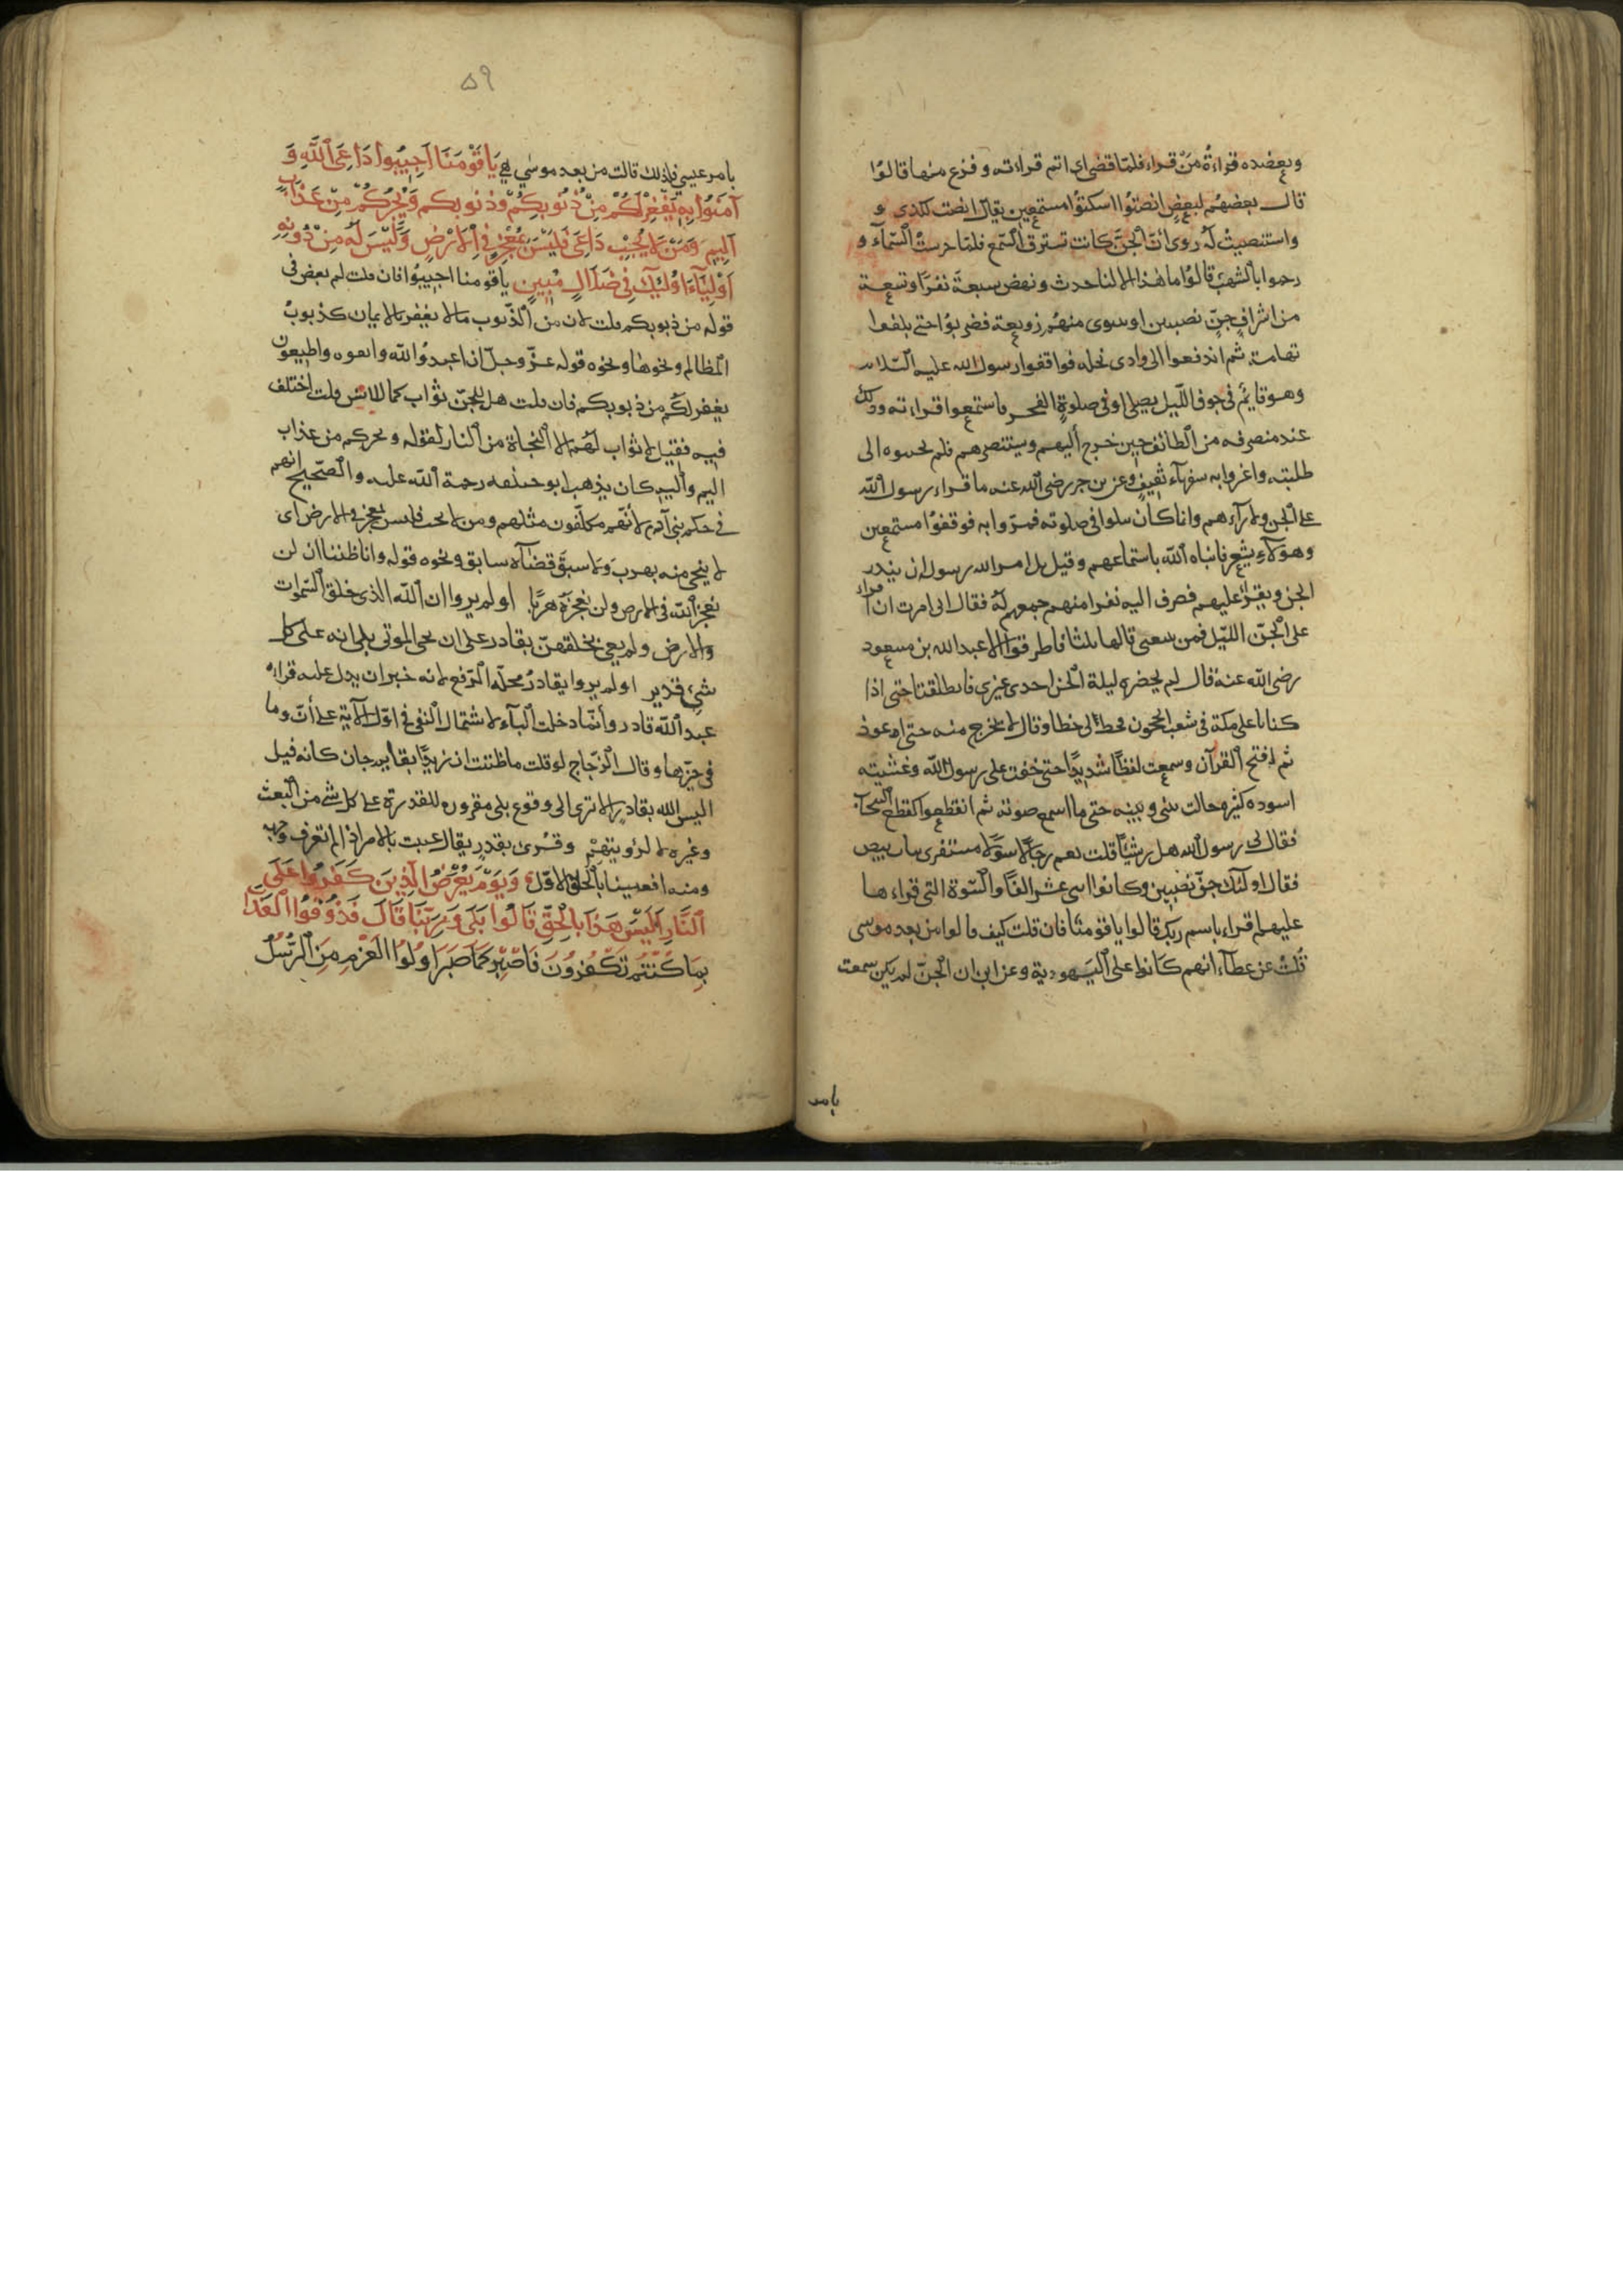 ويعضده قراءة من قراء فلما قضى اى اتم قراءته وفزع منها قالوا
قال بعضهم لبعض انصتوا اسكتوا مستمعين يقال انصت لكذى و
واستنصت له روى ان الجن كانت تسترق السمع فلما حرست السماء و
رحموا بالشهب قالوا ما هذا الا لنا حدث ونهض سبعة نفرا وتسعة
من اشراف جن نصيبين او نينوى منهم زوبعة فضربوا حتى بلغوا
تهامة ثم اندفعوا الى وادى نخله فواقفوا رسول الله عليه السلام
وهو قايم فى جوف الليل يصلى او فى صلوة الفجر فاستمعوا قراءته وذلك
عند منصرفه من الطائف حين خرج اليهم وسيتنصرهم فلم يحسوه الى
طلبته واغروا به سفهآء ثقيف وعن بن جر رضى الله عنه ما قراء رسول الله
على الجن ولا رآءهم وانا كان سلوا فى صلوته فمروا به فوقفوا مستمعين
وهو لا يشعر فانباه الله باستماعهم وقيل بل امر الله رسول ان ينذر
الجن ويقرأ عليهم فصرف اليه نفرا منهم جمعهم له فقال انى امرت ان اقراء
على الجن الليل فمن سعى قالها ثلثا فاطرقوا الا عبد الله بن مسعود
رضى الله عنه قال لم يحضره ليلة الجن احدى غيرى فانطلقنا حتى اذا
كنا باعلى مكة فى شعب الحجون فخط لى خطا وقال لا تخرج منه حتى اعوذ
ثم افتح القرآن وسمعت لغظا شديدا حتى خفت على رسول الله وغشيته
اسوده كثيره حالت بينى وبينه حتى ما اسمع صوته ثم انقطعوا كقطع السحاب
فقال لى رسول الله هل رئيت شيئا قلت نعم رجالا سودا مستفرى ثياب بيض
فقال اولئك جن نصيبين وكانوا اثنى عشر الفا والسورة التى قراءها
عليهم اقراء باسم ربك قالوا يا قومنا فان قلت كيف قالوا من بعد موسى
قلت عن عطآء انهم كانوا على اليهودية وعن ابن ان الجن لم يكن سمعت
بامر
٥٩
بامر عيسى فلذلك قالت من بعد موسى هى يَا قَوْمَنَا اَجِيبُوا دَاعِىَ اللَّهِ وَ
آمَنُوا بِهِ يَغْفِرْ لَكُمْ مِنْ ذُنُوبِكُمْ وذنوبكم وَيُجِرْكُمْ مِنْ عَذَابٍ
اَلِيمٍ وَمَنْ لَا يُجِبْ دَاعِىَ فَلَيْسَ بِمُعْجِزٍ فِى الْاَرْضِ وَلَيْسَ لَهُ مِنْ دُونِهِ
اَوْلِيَآءَ اُولَئِكَ فِى ضَلَالٍ مُبِينٍ يا قومنا اجيبوا فان قلت لم بعض فى
قوله من ذبوبكم قلت لان من الذنوب ما لا يغفر بالايمان كذبوب
المظالم ونحوها ونحوه قوله عز وجل ان اعبدوا الله واتقوه واطيعون
يغفر لكم من ذبوبكم فان قلت هل للجن ثواب كما للانس قلت اختلف
فيه فقيل لا ثواب لهم الا النجاة من النار لقوله ويجركم من عذاب
اليم واليه كان يذهب ابو حنيفه رحمة الله عليه والصحيح انهم
فى حكم بنى آدم لانهم مكلفون مثلهم ومن لا يجب فليس بمعجز فى الارض اى
لا ينجى منه بهرب ولا سبق قضآه سابق ونحوه قوله وانا ظننا ان لن
نعجز الله فى الارض ولن نعجزه هربا او لم يروا ان الله الذى خلق السموات
والارض ولم يعى بخلقهن بقادر على ان يحى الموتى بلى انه على كل
شىء قدير او لم يروا بقادر محله الرفع لانه خبر ان يدل عليه قراءة
عبد الله قادر وانما دخلت الباء لاشتمال النفى فى اول الآية على ان وما
فى حيزها وقال الزجاج لو قلت ما ظننت ان زيدا بقايم جان كانه قيل
اليس الله بقادر الا ترى الى وقوع بلى مقرره للقدرة على كل شى من البعث
وغيره لا لرؤيتهم وقرى بقدر يقال عييت بالامر اذا لم تعرف وجهه
ومنه افعيينا بالخلق الاول وَيَوْمَ يُعْرَضُ الَّذِينَ كَفَرُوا عَلَى
النَّارِ اَلَيْسَ هَذَا بِالْحَقِّ قَالُوا بَلَى وَرَبِّنَا قَالَ فَذُوقُوا الْعَذَابَ
بِمَا كُنْتُمْ تَكْفُرُونَ فَاصْبِرْ كَمَا صَبَرَ اُولُوا الْعَزْمِ مِنَ الرُّسُلِ